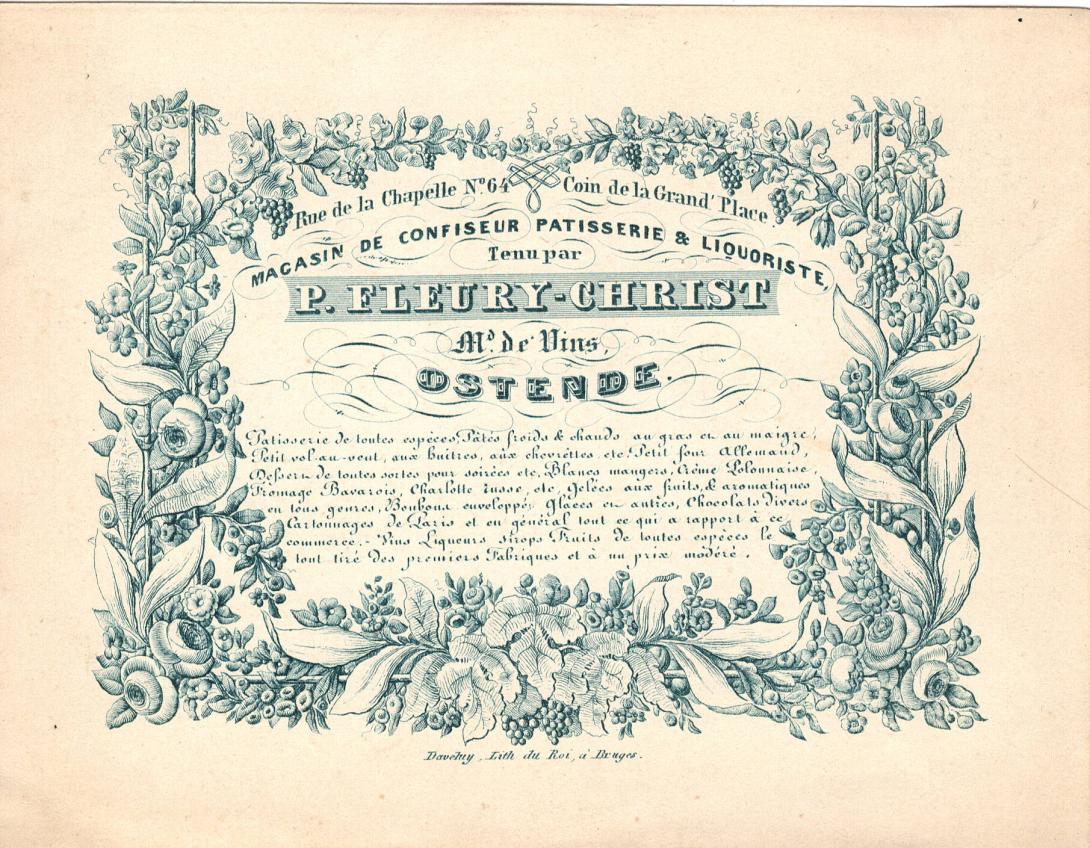 Rue de la Chapelle N° 64 Coin de la Grand' Place
MAGASIN DE CONFISEUR PATISSERIE & LIQUORISTE,
Tenu par
P. FLEURY-CHRIST
Md. de Vins,
OSTENDE.
Patisserie de toutes espèces, Pâtés froids & chauds au gras et au maigre,
Petit vol-au-vent, aux huîtres, aux chevrettes etc. Petit four Allemand,
Dessert de toutes sortes pour soirées etc, Blancs mangers, Crême Polonnaise,
Fromage Bavarois, Charlotte russe, etc, Gelées aux fruits, & aromatiques
en tous genres, Bonbons enveloppés, Glacés et autres, Chocolats divers
Cartonnages de Paris et en général tout ce qui a rapport à ce
commerce. - Vins Liqueurs sirops Fruits de toutes espèces le
tout tiré des premiers Fabriques et à un prix modéré.
Daveluy, Lith du Roi, à Bruges.